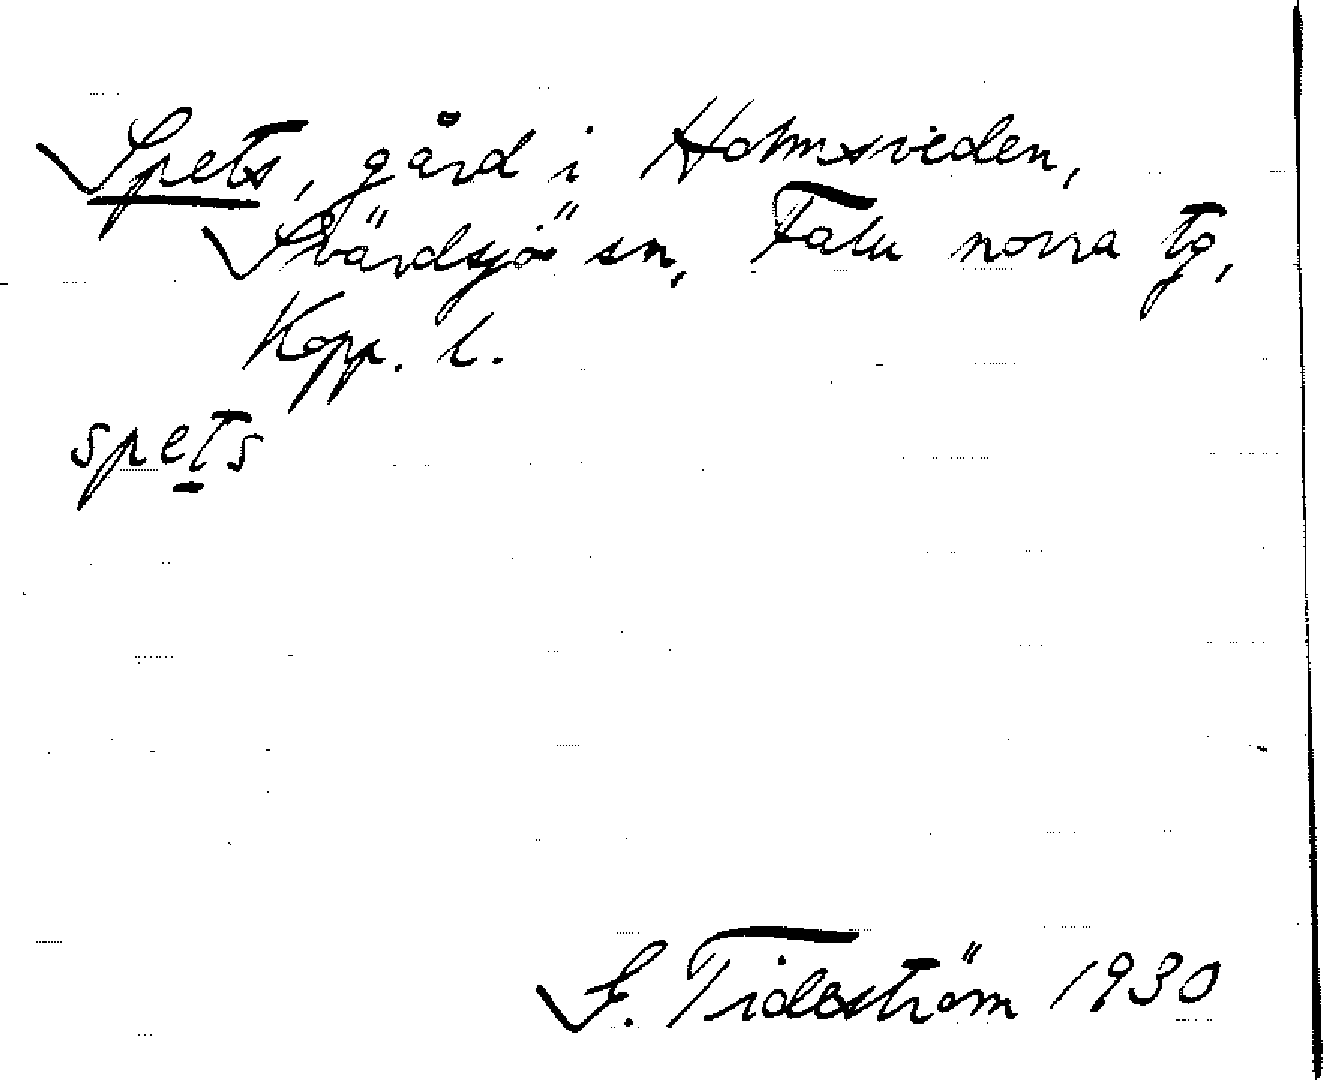 Spets, gård i Holmsveden,
Svärdsjö sn, Falu norra tg,
Kopp. l.
spets
S. Tideström 1930